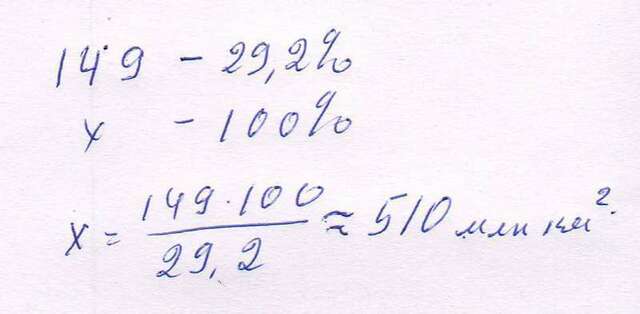 149 - 29,2%
x - 100%
x = 149·100 / 29,2 ≈ 510 млн км².